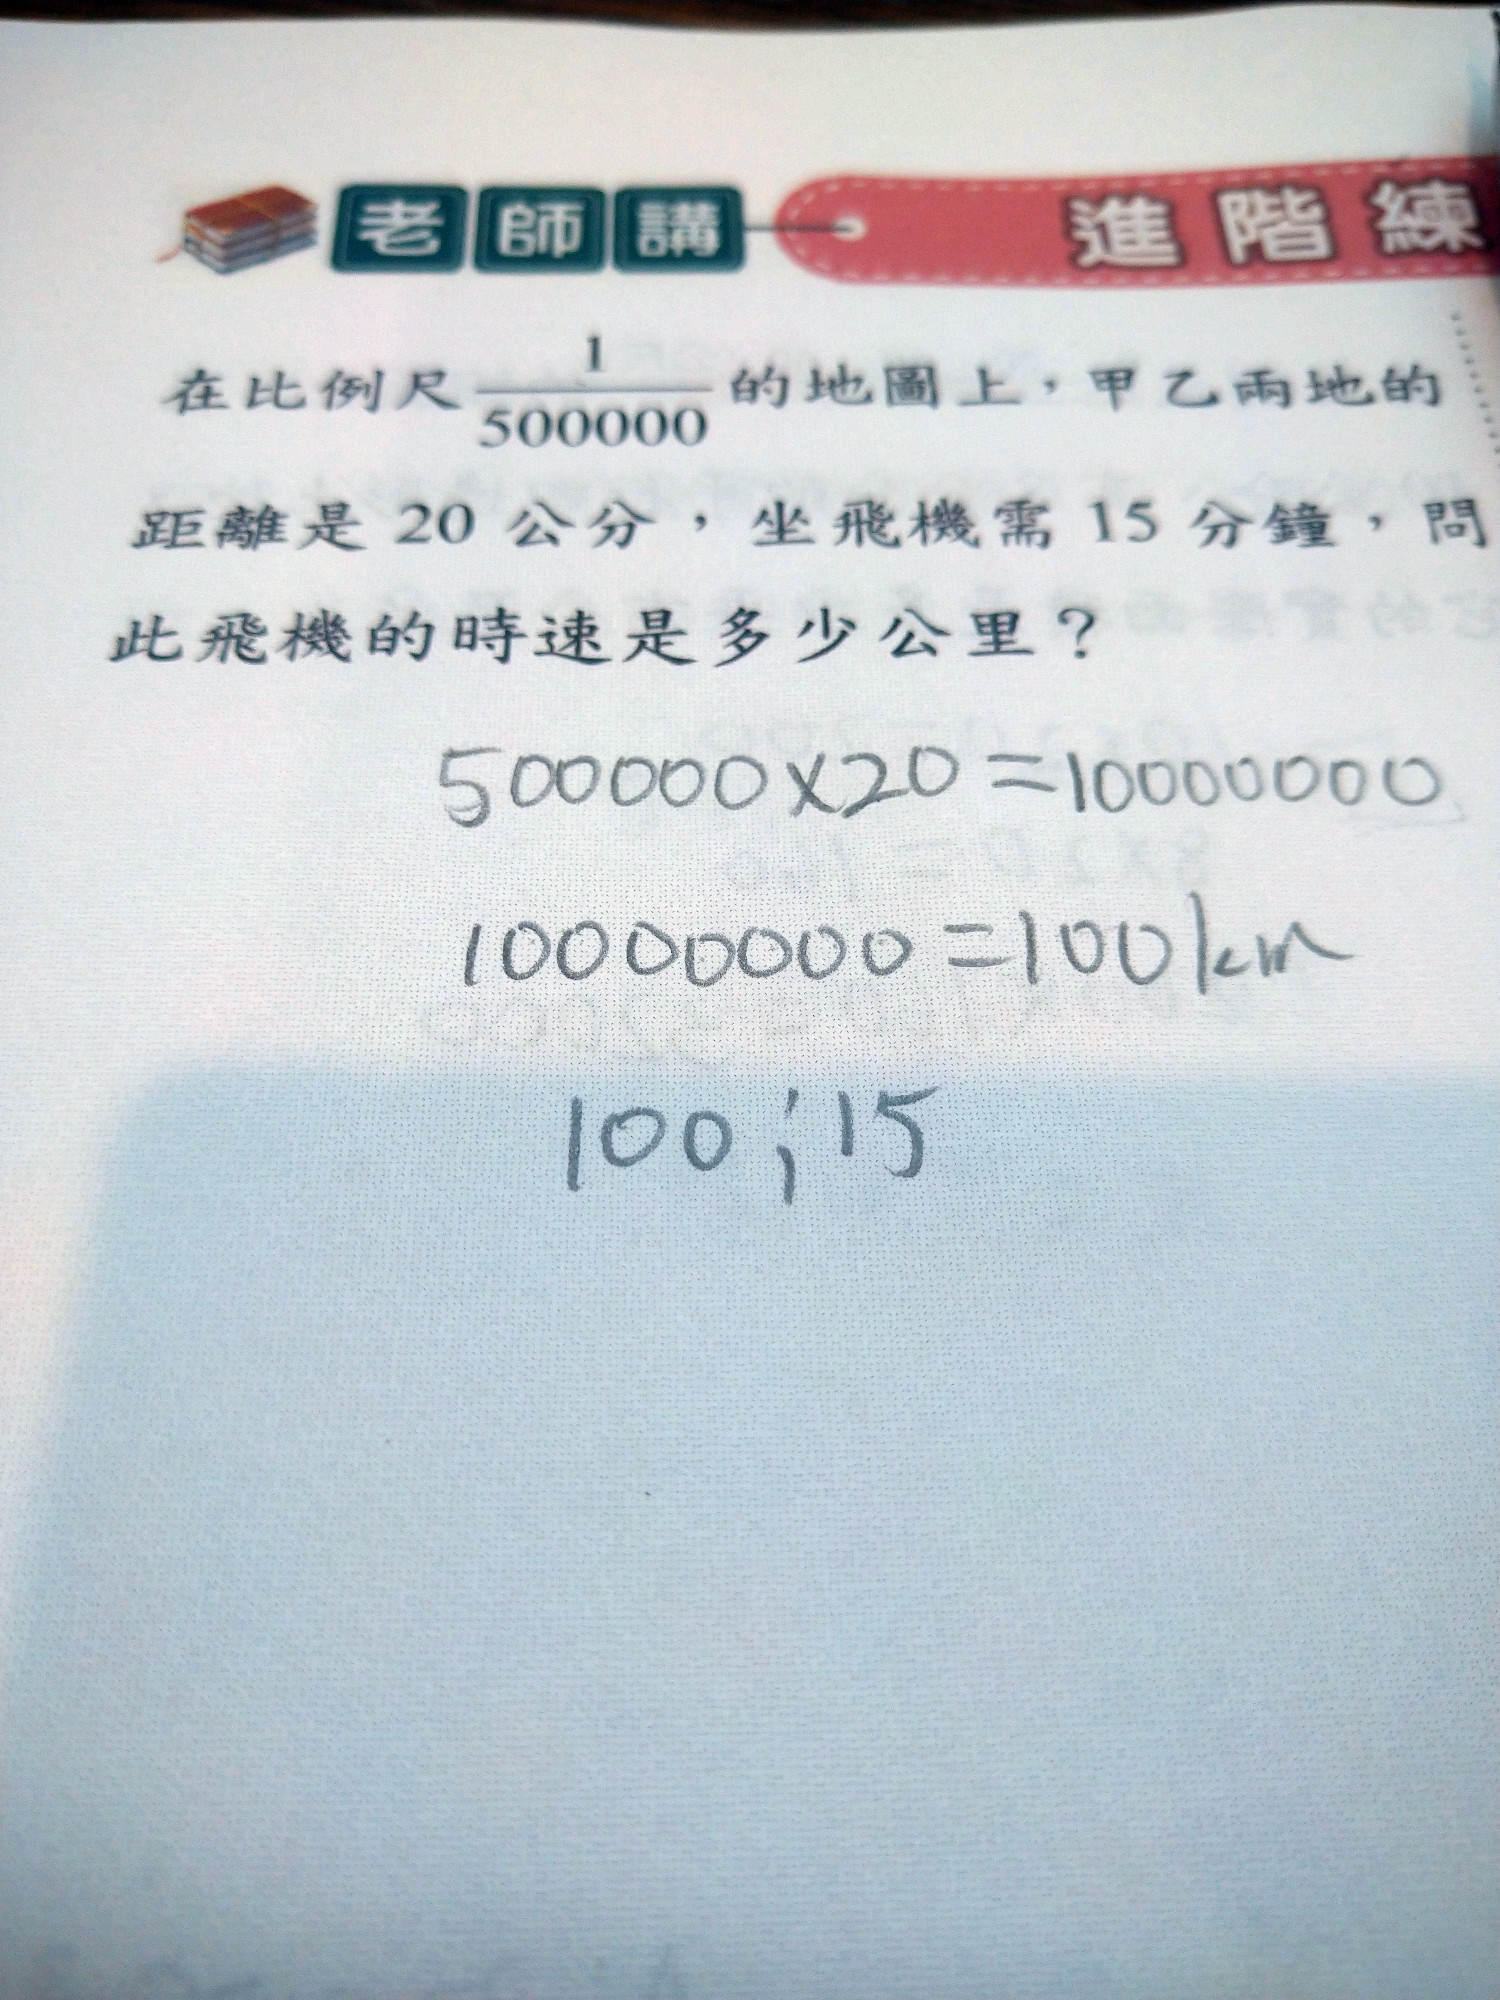 老師講 進階練
在比例尺 1/500000 的地圖上，甲乙兩地的
距離是 20 公分，坐飛機需 15 分鐘，問
此飛機的時速是多少公里？
500000×20=10000000
10000000=100km
100;15